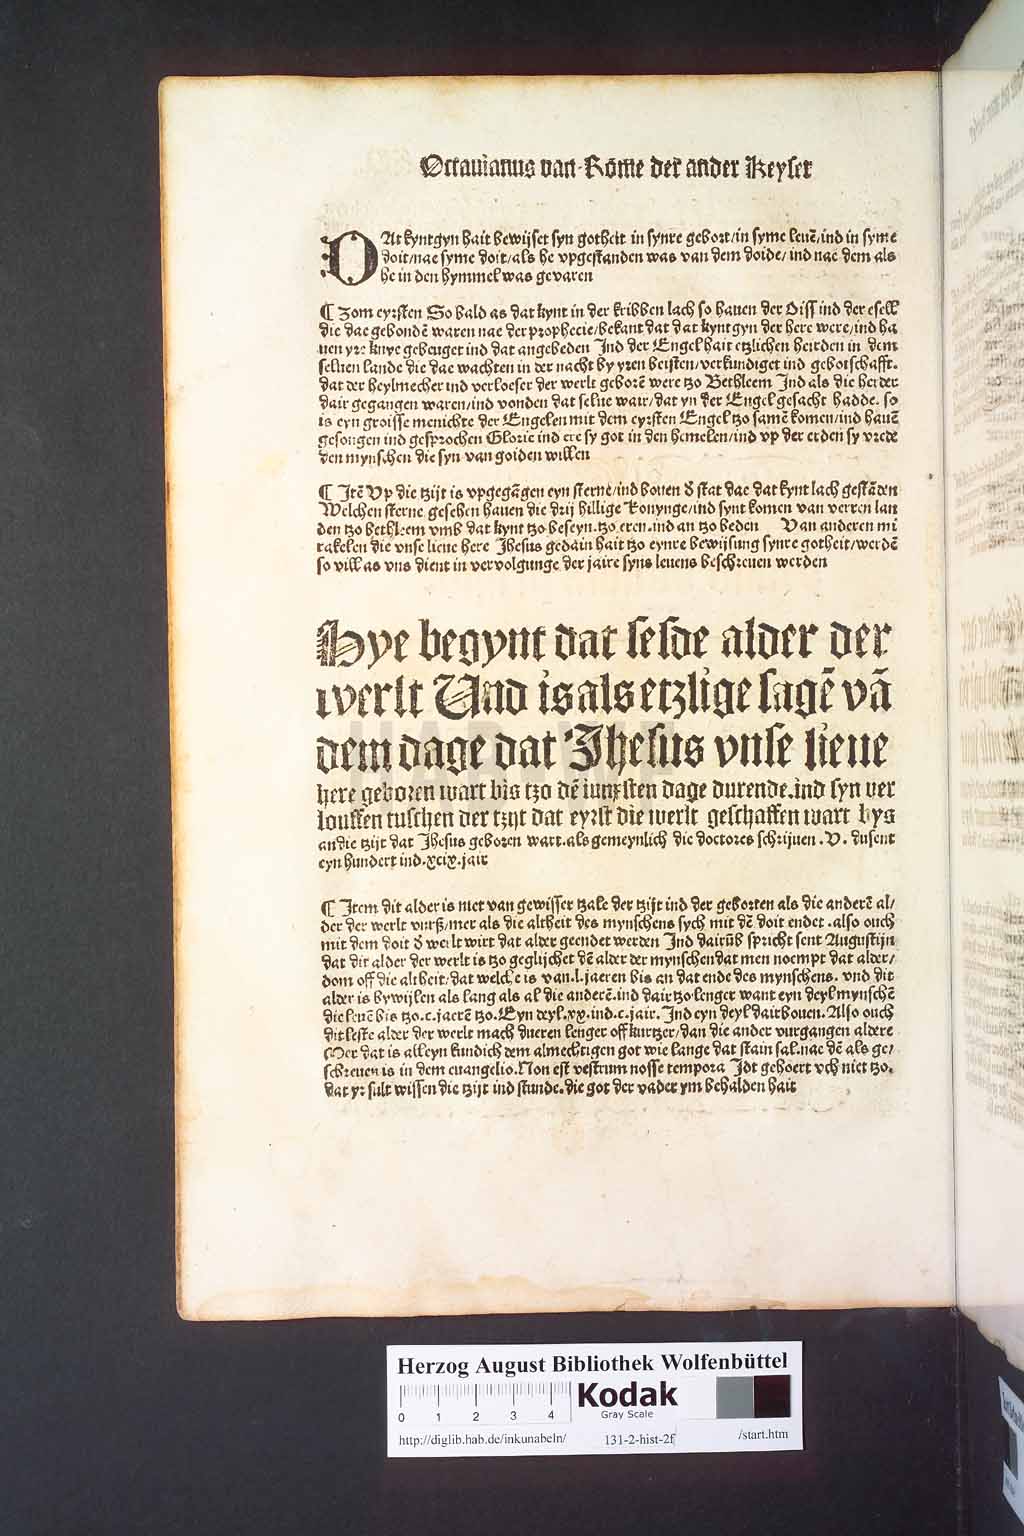 Octauianus van Röme der ander Keyser
DAt kyntgyn hait bewijset syn gotheit in synre gebort/in syme leuē/ind in syme
doit/nae syme doit/als he vpgestanden was van dem doide/ind nae dem als
he in den hymmel was gevaren
¶ Zom eyrsten So bald as dat kynt in der kribben lach so hauen der Oiss ind der esell
die dae gebondē waren nae der prophecie/bekant dat dat kyntgyn der here were/ind ha
uen yre knye gebeuget ind dat angebeden Ind der Engel hait etzlichen heirden in dem
seluen lande die dae wachten in der nacht by yren beisten/verkundiget ind gebotschafft.
dat der heylmecher ind verloeser der werlt geborē were tzo Bethleem Ind als die herder
dair gegangen waren/ind vonden dat selue wair/dat yn der Engel gesacht hadde. so
is eyn groisse menichte der Engelen mit dem eyrsten Engel tzo samē komen/ind hauē
gesongen ind gesprochen Glorie ind ere sy got in den hemelen/ind vp der erden sy vrede
den mynschen die syn van goiden willen
¶ Itē Vp die tzijt is vpgegāgen eyn sterne/ind bouen d stat dae dat kynt lach gestādēn
Welchen sterne gesehen hauen die drij hillige Konynge/ind synt komen van verren lan
den tzo bethleem vmb dat kynt tzo beseyn.tzo eren.ind an tzo beden Van anderen mi
rakelen die vnse lieue here Jhesus gedain hait tzo eynre bewijsung synre gotheit/werdē
so vill as vns dient in vervolgunge der jaire syns leuens beschreuen werden
Hye begynt dat sesde alder der
werlt Vnd is als etzlige sagē vā
dem dage dat Jhesus vnse lieue
here geboren wart bis tzo dē iunxsten dage durende.ind syn ver
louffen tuschen der tzijt dat eyrst die werlt geschaffen wart bys
andie tzijt dat Jhesus geboren wart.als gemeynlich die doctores schrijuen .V. dusent
eyn hundert ind .xcix. jair
¶ Item dit alder is niet van gewisser tzale der tzijt ind der geborten als die anderē al/
der der werlt vurß/mer als die altheit des mynschens sych mit dē doit endet .also ouch
mit dem doit d werlt wirt dat alder geendet werden Ind dairūb spricht sent Augustijn
dat dit alder der werlt is tzo geglijchet dē alder der mynschen dat men noempt dat alder/
dom off die altheit/dat welche is van.l.jaeren bis an dat ende des mynschens. vnd dit
alder is bywijlen als lang als al die anderē.ind dair tzo lenger want eyn deyl mynschē
die leuē bis tzo.c.jaerē tzo. Eyn deyl.xx.ind.c.jair. Ind eyn deyl dairbouen. Also ouch
dit leste alder der werlt mach dueren lenger off kurtzer/dan die ander vurgangen aldere
Mer dat is alleyn kundich dem almechtigen got wie lange dat stain sal.nae dē als ge/
schreuen is in dem euangelio. Non est vestrum nosse tempora Idt gehoert vch niet tzo.
dat yr sult wissen die tzijt ind stunde.die got der vader ym behalden hait
Herzog August Bibliothek Wolfenbüttel
0 1 2 3 4
Kodak
Gray Scale
http://diglib.hab.de/inkunabeln/ 131-2-hist-2f /start.htm